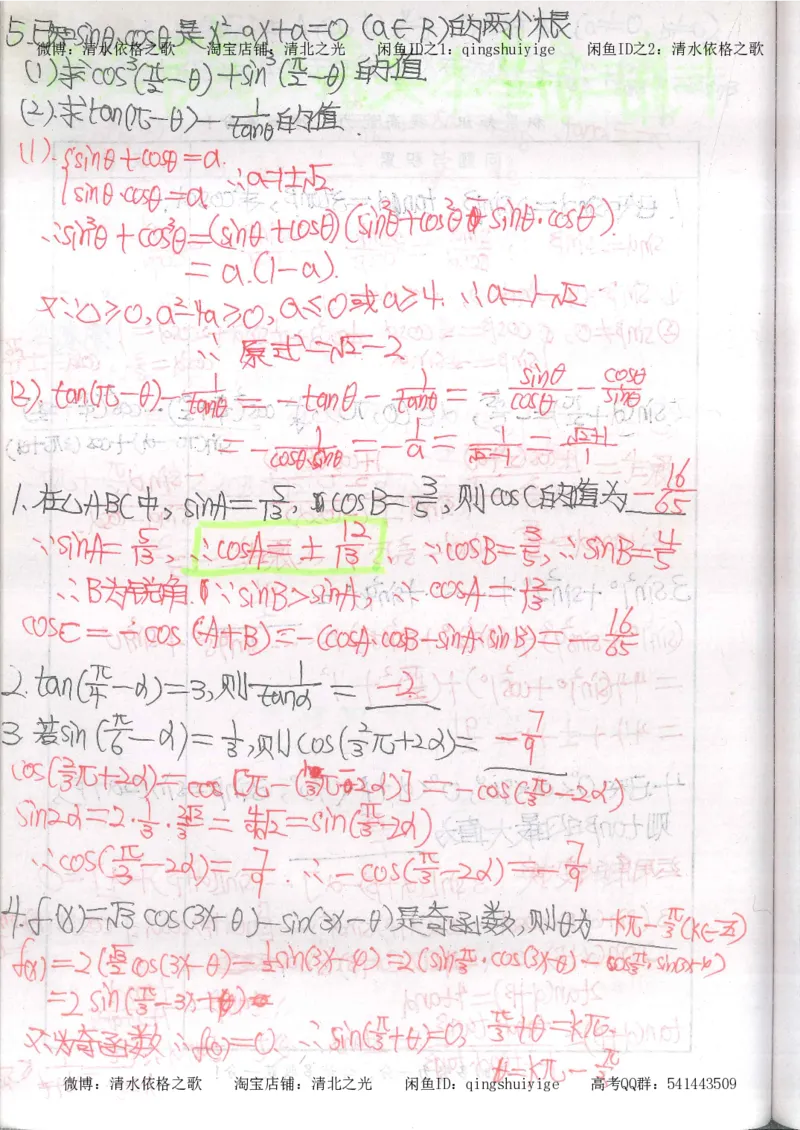 5.已知sinθ,cosθ是x²-ax+a=0 (a∈R)的两个根
微博：清水依格之歌 淘宝店铺：清北之光 闲鱼ID之1：qingshuiyige 闲鱼ID之2：清水依格之歌
(1)求cos³(π/2-θ)+sin³(π/2-θ)的值
(2).求tan(π-θ)-1/tanθ的值.
(1).{sinθ+cosθ=a.
sinθ·cosθ=a ∴a=1±√2
∴sin³θ+cos³θ=(sinθ+cosθ)(sin²θ+cos²θ-sinθ·cosθ).
=a.(1-a).
又∵△≥0,a²-4a≥0,a≤0或a≥4.∴a=1-√2
∴原式=√2-2
(2).tan(π-θ)-1/tanθ=-tanθ-1/tanθ=-sinθ/cosθ-cosθ/sinθ
=-1/cosθ·sinθ=-1/a=1/√2-1=√2+1/1
1.在△ABC中,sinA=5/13,cosB=3/5,则cosC的值为-16/65
∵sinA=5/13,∴cosA=±12/13. ∵cosB=3/5,∴sinB=4/5
∴B为锐角.∵sinB>sinA,∴cosA=12/13
cosC=-cos(A+B)=-(cosA·cosB-sinA·sinB)=-16/65
2.tan(π/4-α)=3,则1/tanα=-2
3.若sin(π/6-α)=1/3,则cos(2/3π+2α)=-7/9
cos(2/3π+2α)=cos[π-(1/3π-2α)]=-cos(π/3-2α)
sin2α=2·1/3·2√2/3=4√2=sin(π/3-2α)
∵cos(π/3-2α)=7/9.∴-cos(π/3-2α)=-7/9
4.f(x)=√3cos(3x-θ)-sin(3x-θ)是奇函数,则θ为-kπ-π/3(k∈Z)
f(x)=2(√3/2cos(3x-θ)-1/2sin(3x-φ)=2(sinπ/3·cos(3x-θ)-cosπ/3·sin(3x-φ)
=2sin(π/3-3x+θ)
又为奇函数∴f(0)=0.∴sin(π/3+θ)=0,π/3+θ=kπ.
θ=kπ-π/3
微博：清水依格之歌 淘宝店铺：清北之光 闲鱼ID：qingshuiyige 高考QQ群：541443509